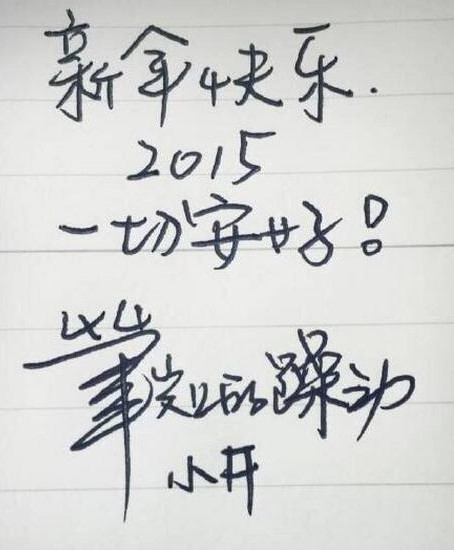 新年快乐.
2015
一切安好!
的躁动
小开